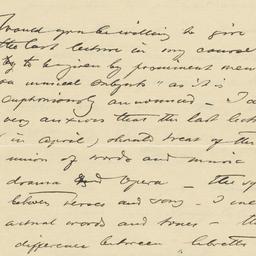 Would you be willing to give
the last lecture in my course
to be given by prominent men
on musical subjects "as it is
euphoniously announced — I a
very anxious that the last lect
(in April) should treat of the
union of words and music
drama and Opera — the sy
between verses and song — I me
actual words and tones — the
difference between "libretto